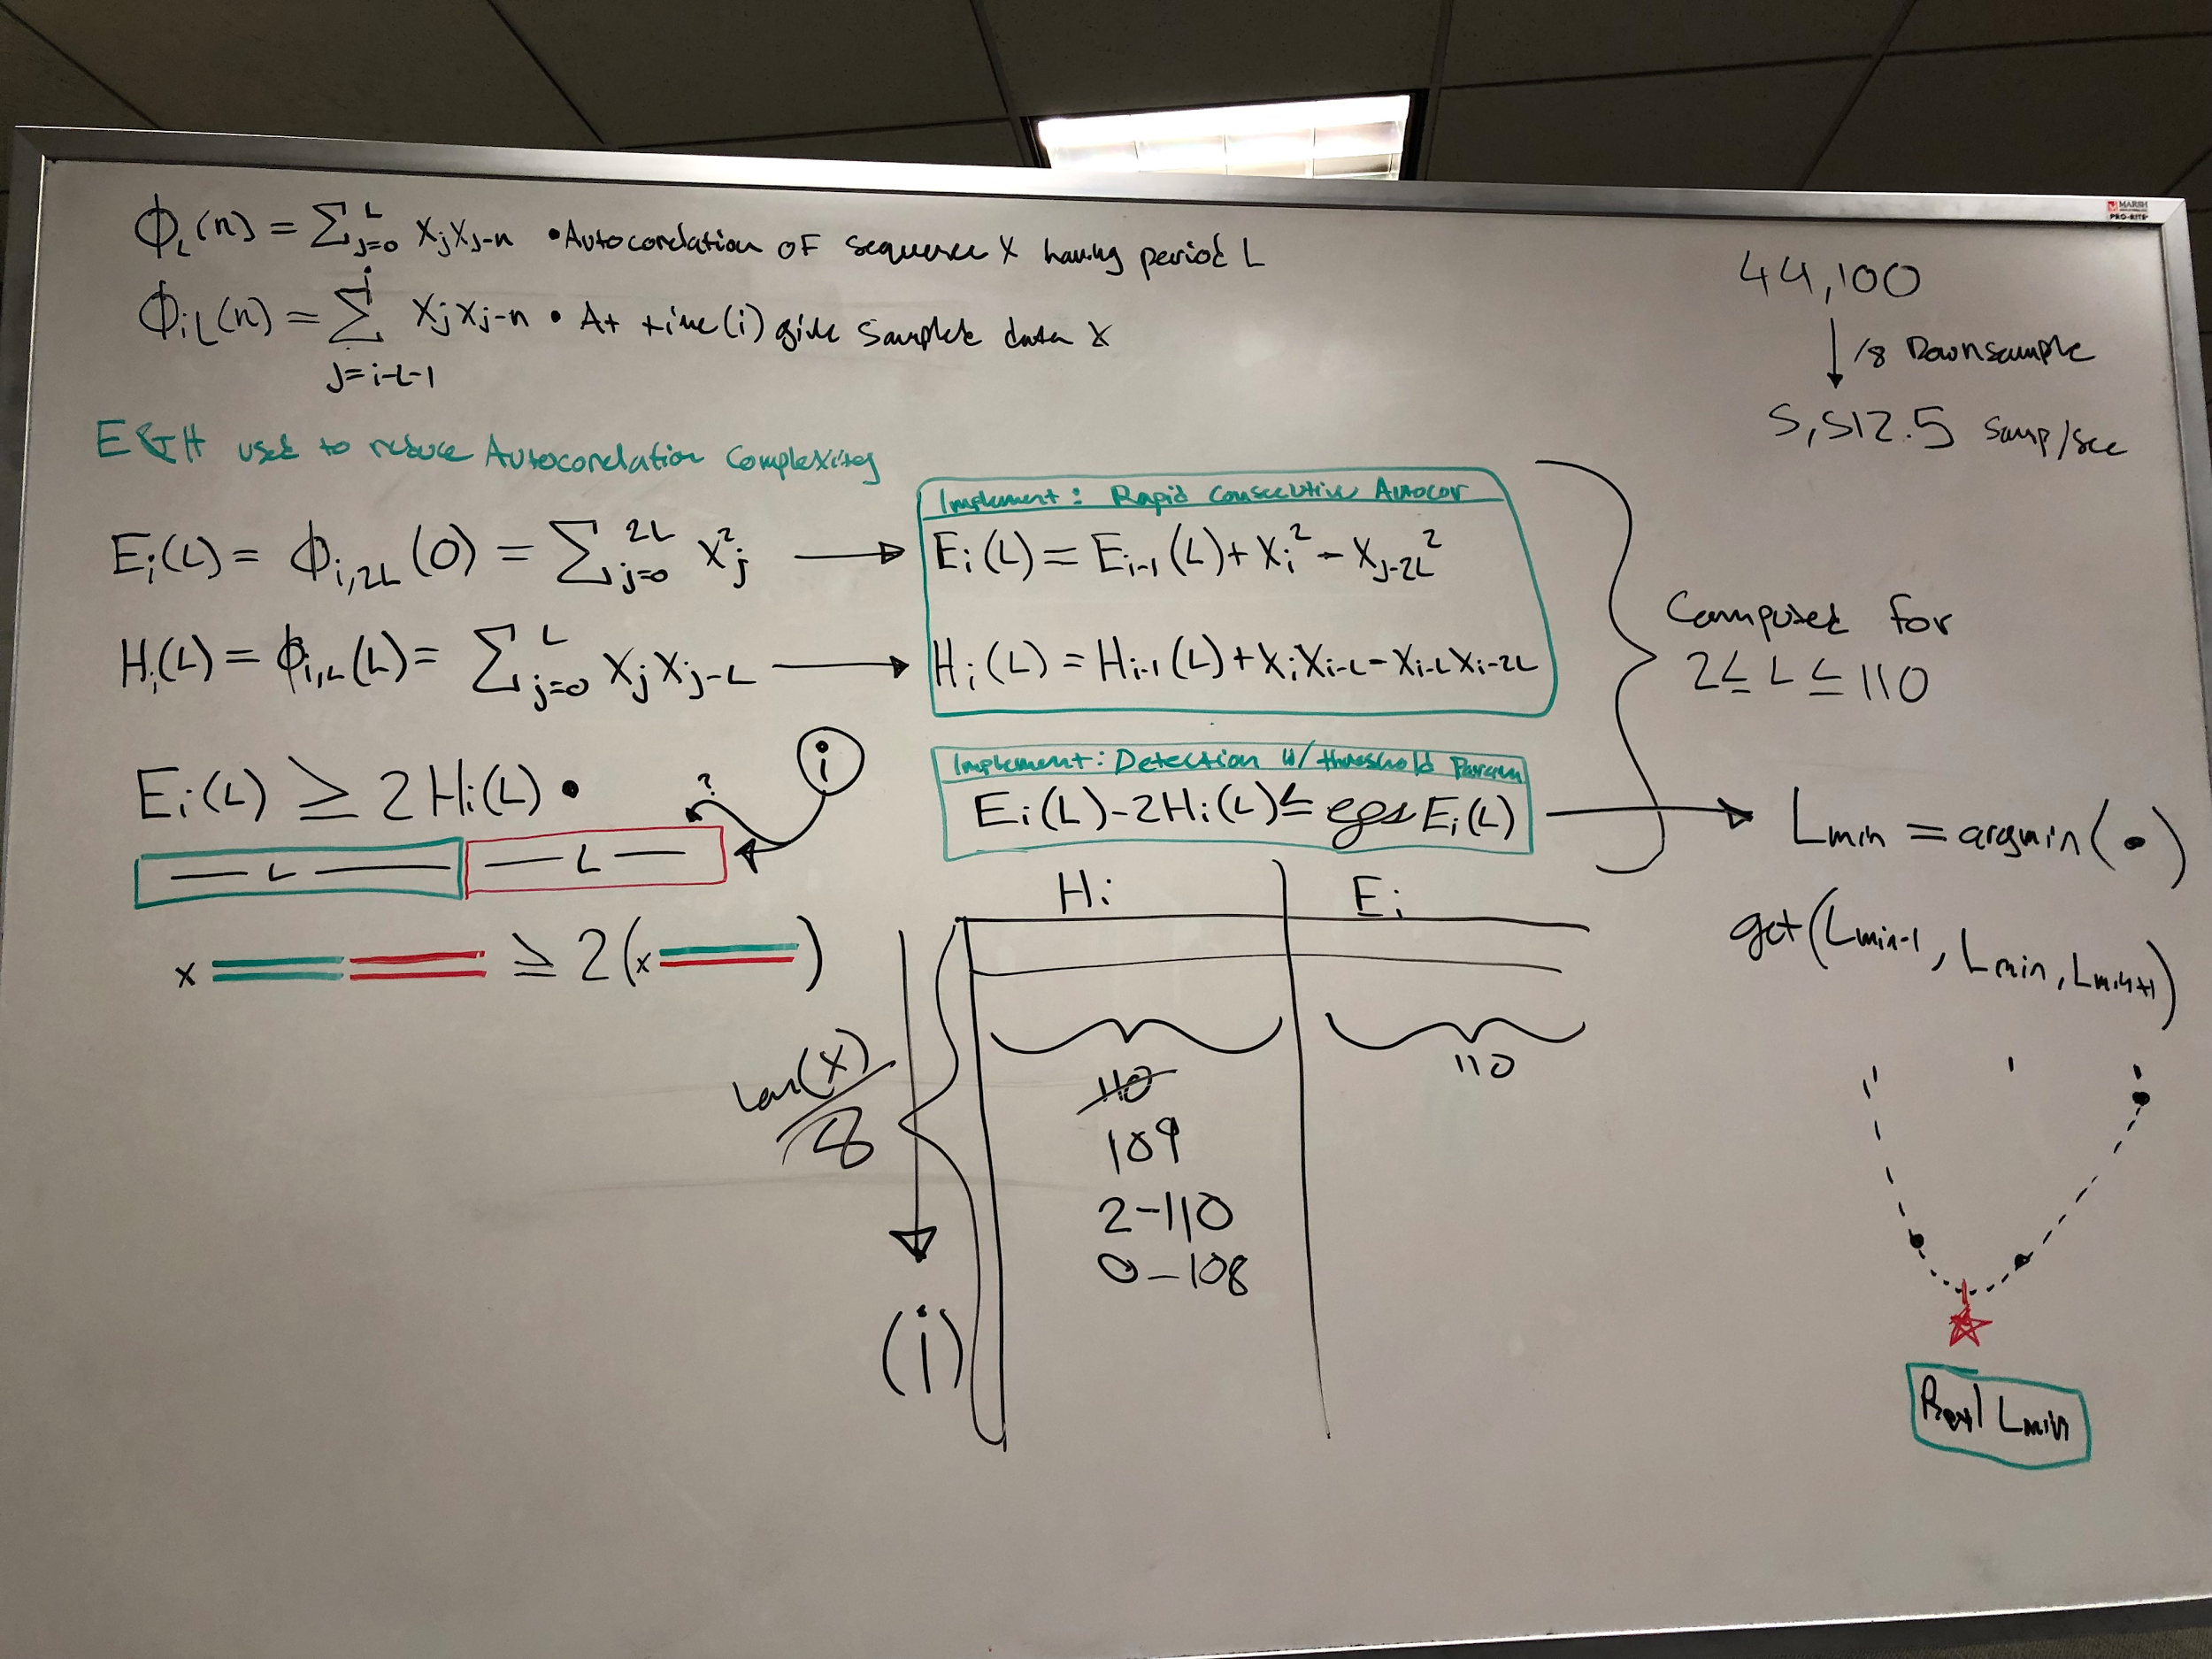 MARSH
PRO-RITE
ϕ_L(n) = ∑_{j=0}^{L} X_j X_{j-n} • Autocorelation OF sequence X having period L
ϕ_{iL}(n) = ∑_{j=i-L-1}^{i} X_j X_{j-n} • At time (i) give Sampled data X
44,100
↓ /8 Downsample
5,512.5 Samp/sec
E&H used to reduce Autocorelation Complexity
Implement: Rapid Consecutive Autocor
E_i(L) = ϕ_{i,2L}(0) = ∑_{j=0}^{2L} X_j^2 → E_i(L) = E_{i-1}(L) + X_i^2 - X_{j-2L}^2
H_i(L) = ϕ_{i,L}(L) = ∑_{j=0}^{L} X_j X_{j-L} → H_i(L) = H_{i-1}(L) + X_i X_{i-L} - X_{i-L} X_{i-2L}
Computed for
2 ≤ L ≤ 110
E_i(L) ≥ 2H_i(L) •
?
i
Implement: Detection w/ threshold Param
E_i(L) - 2H_i(L) ≤ eps E_i(L) →
L_min = argmin(•)
get(L_{min-1}, L_min, L_{min+1})
— L —
— L —
x ≥ 2(x )
H_i E_i
Len(X)
8
(i)
110
110
109
2-110
0-108
Real L_min